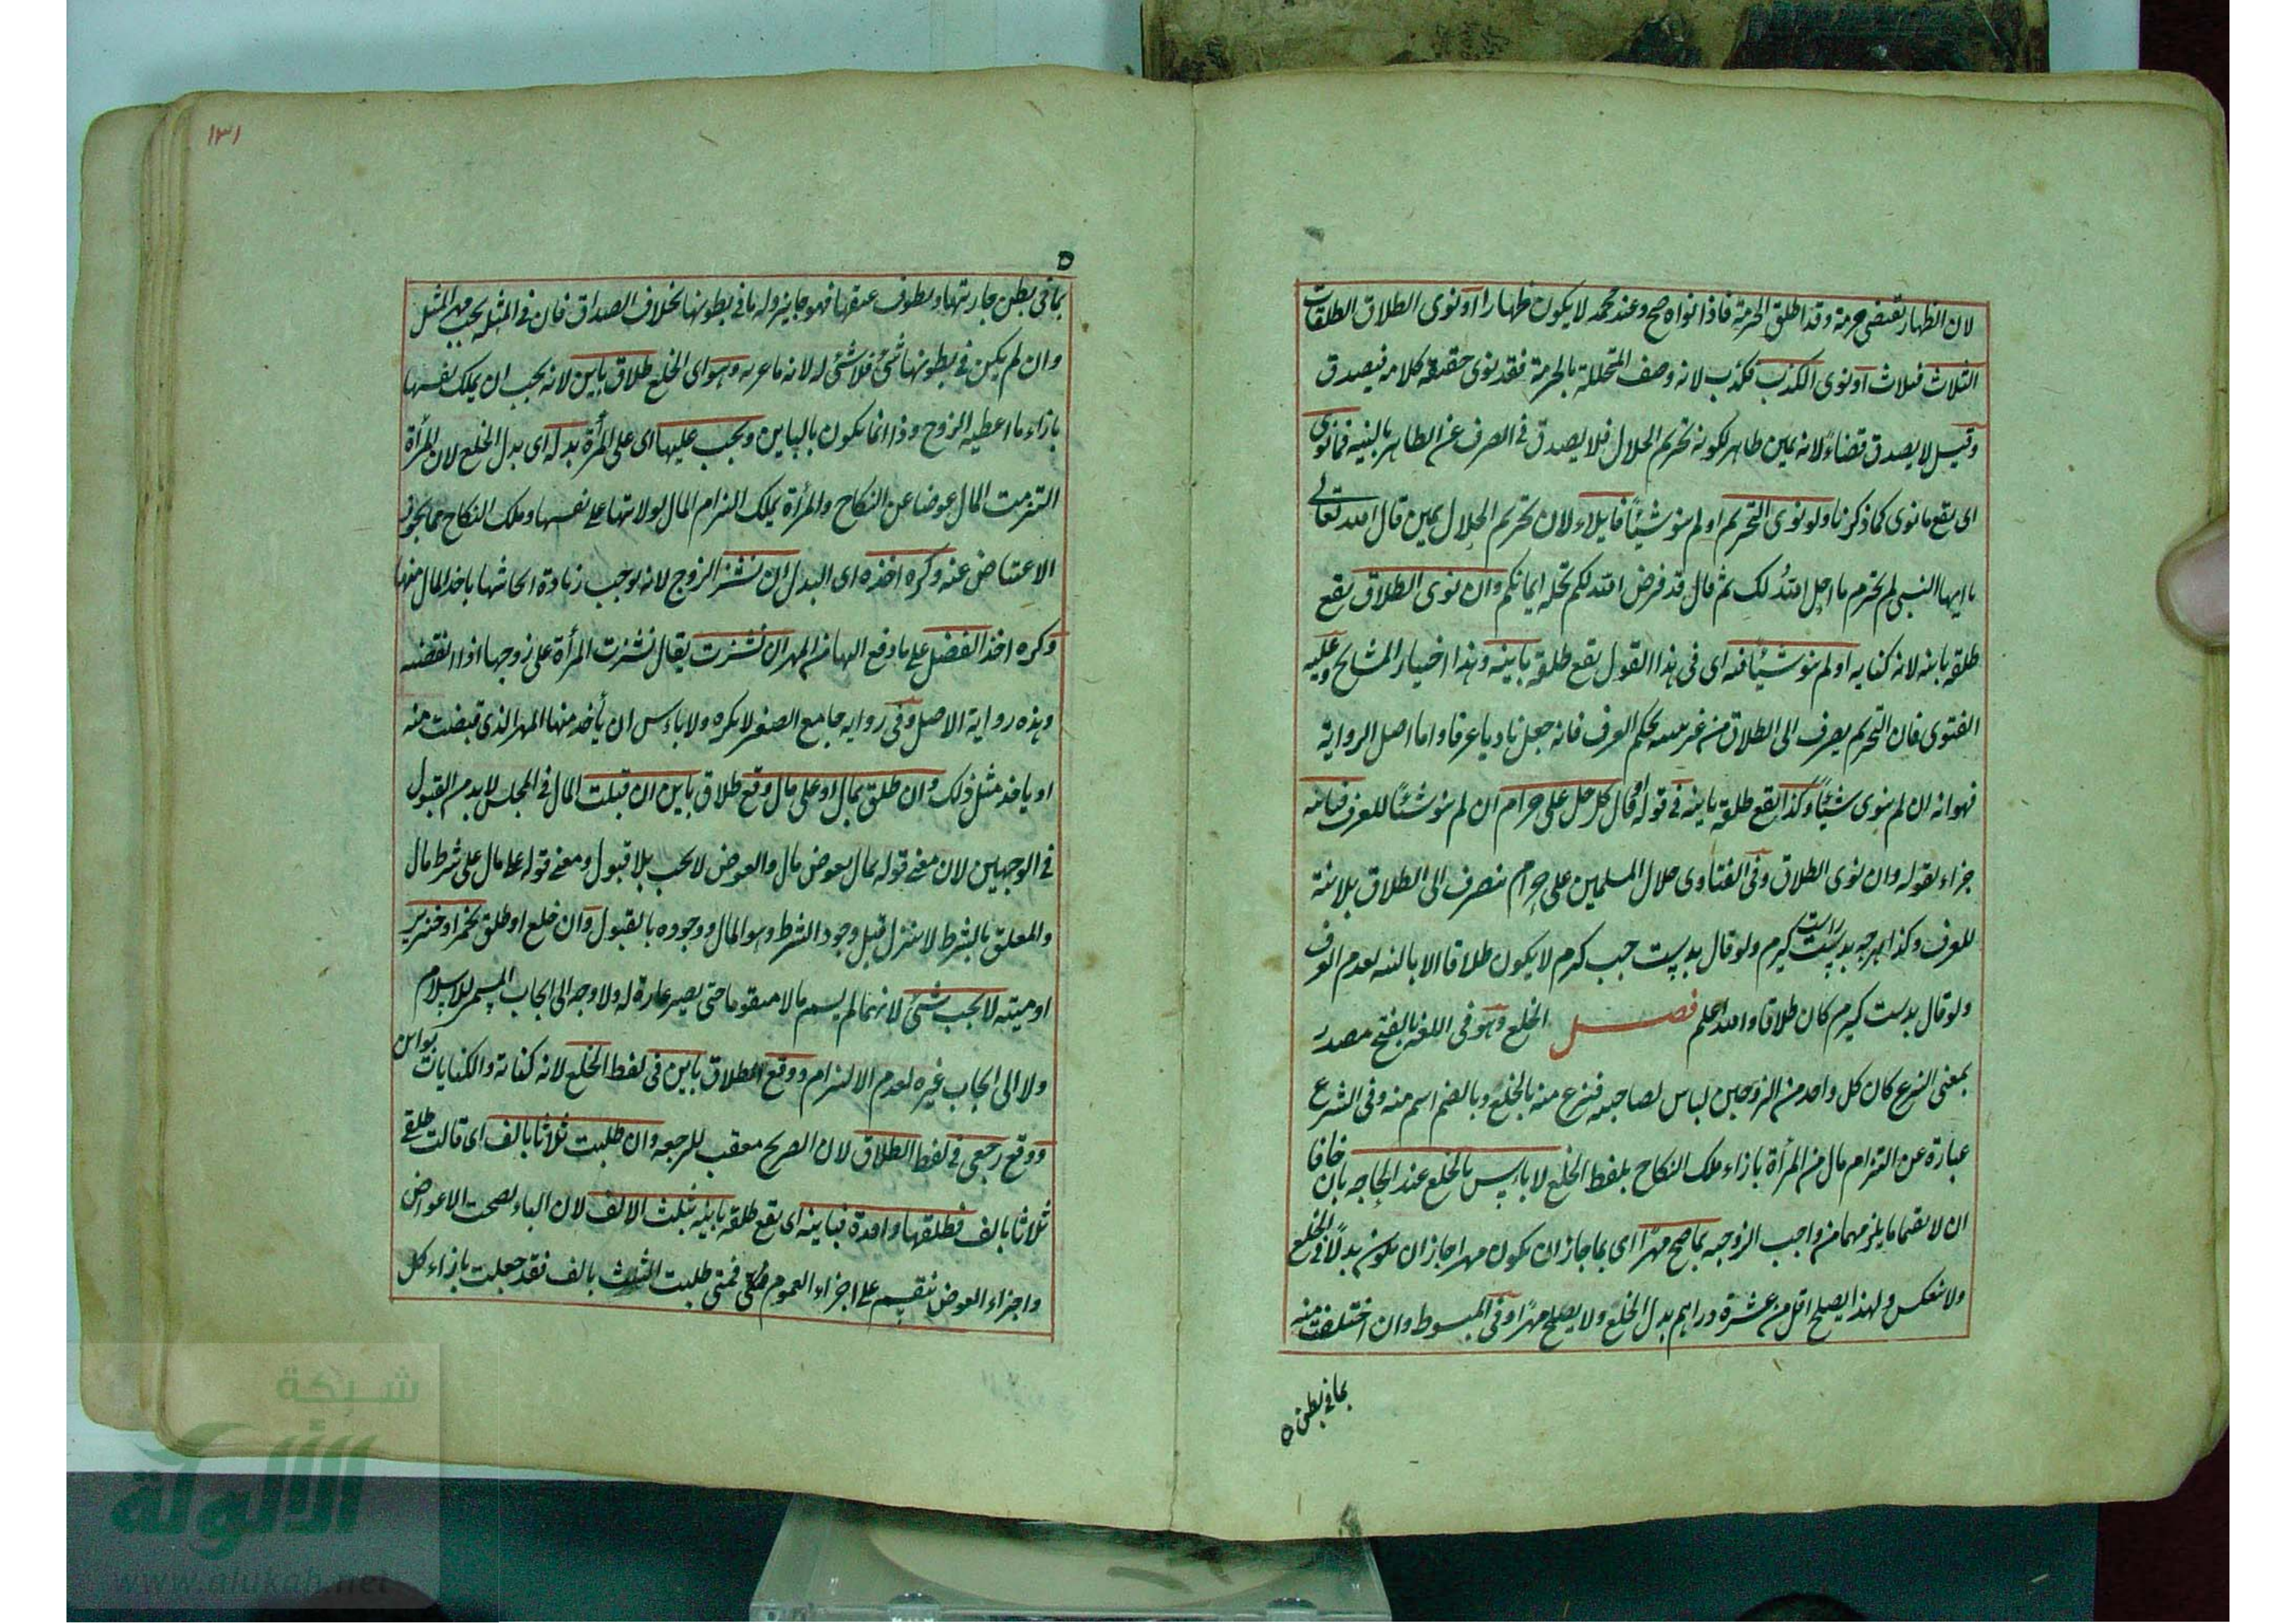 لان الظهار تقتضى حرمة وقد اطلق الحرمة فاذا نواه صح وعند محمد لا يكون ظهارا او نوى الطلاق الطلقات
الثلاث فثلاث او نوى الكذب فكذب لانه وصف المتحللة بالحرمة فقد نوى حقيقة كلامه فيصدق
وقيل لا يصدق قضاءً لانه يمين ظاهر لكونه تحريم الحلال فلا يصدق فى الصرف عن الظاهر بالنيه فما نوى
اى يقع ما نوى كما ذكرنا ولو نوى التحريم او لم ينو شيئاً فايلاء لان تحريم الحلال يمين قال الله تعالى
يا ايها النبى لم تحرم ما احل الله لك ثم قال قد فرض الله لكم تحلة ايمانكم وان نوى الطلاق يقع
طلقة باينه لانه كنايه او لم ينو شيئاً فيه اى فى هذا القول يقع طلقة باينه وهذا اختيار المشايخ وعليه
الفتوى فان التحريم يصرف الى الطلاق من غير نيته بحكم العرف فانه جعل ناويا عرفا واما اصل الرواية
فهو انه ان لم ينوى شيئاً وكذا يقع طلقة باينه فى قوله او قال كل حل على حرام ان لم ينو شيئاً للعرف فباينه
جزاء لقوله وان نوى الطلاق وفى الفتاوى حلال المسلمين على حرام ينصرف الى الطلاق بلا نية
للعرف وكذا هرچه بدست راست كيرم ولو قال بدست چپ كرم لا يكون طلاقا الا بالنيه لعدم العرف
ولو قال بدست كيرم كان طلاقا والله اعلم فصل الخلع وهو فى اللغه بالفتح مصدر
بمعنى النزع كان كل واحد من الزوجين لباس لصاحبه فنزع منه بالخلع وبالضم اسم منه وفى الشرع
عبارة عن التزام مال من المرأة بازاء ملك النكاح بلفظ الخلع لا بأس بالخلع عند الحاجه بان خافا
ان لا يقيما ما يلزمهما من واجب الزوجيه بما صح مهراً اى بما جاز ان يكون مهرا جاز ان يكون بدلاً فى الخلع
ولا ينعكس ولهذا يصلح اقل من عشرة دراهم بدل الخلع ولا يصلح مهراً وفى المبسوط وان اختلفت منه
بما فى بطن
١٣١
بما فى بطن جاريتها وبطون غنمها فهو جايز وله ما فى بطونها بخلاف الصداق فان فى المثله يجب مهر المثل
وان لم يكن فى بطونها شئ فلا شئ له لانه ما غره وهو اى الخلع طلاق باين لانه يجب ان يملك نفسها
بازاء ما اعطيه الزوج وذا انما يكون بالباين ويجب عليها اى على المرأة بدله اى بدل الخلع لان المرأة
التزمت المال عوضا عن النكاح والمرأة يملك التزام المال لولايتها على نفسها وملك النكاح مما يجوز
الاعتياض عنه وكره اخذه اى البدل ان نشز الزوج لانه يوجب زيادة ايحاشها باخذ المال منها
وكره اخذ الفضل على ما دفع اليها من المهر ان نشزت يقال نشزت المرأة على زوجها اذا ابغضته
وهذه رواية الاصل وفى روايه جامع الصغير لا يكره ولا بأس ان يأخذ منها المهر الذى قبضت منه
او ياخذ مثل ذلك وان طلق بمال او على مال وقع طلاق باين ان قبلت المال فى المجلس لا بد من القبول
فى الوجهين لان معنى قوله بمال بعوض مال والعوض لا يجب بلا قبول ومعنى قوله على مال على شرط مال
والمعلق بالشرط لا ينزل قبل وجود الشرط وهو المال ووجوده بالقبول وان خلع او طلق بخمر او خنزير
او ميتة لا يجب شئ لانهما لم يسم مالا متقوما حتى يصير غارة له ولا وجه الى ايجاب المسمى للاسلام
ولا الى ايجاب غيره لعدم الالتزام ووقع الطلاق باين فى لفظ الخلع لانه كناية والكنايات بواين
ووقع رجعى فى لفظ الطلاق لان الصريح معقب للرجعه وان طلبت ثلاثا بالف اى قالت طلقنى
ثلاثا بالف فطلقها واحدة فباينه اى يقع طلقة باينه بثلث الالف لان الباء يصحب الاعواض
واجزاء العوض ينقسم على اجزاء العموم فمتى طلبت الثلاث بالف فقد جعلت بازاء كل
شبكة
الألوكة
www.alukah.net